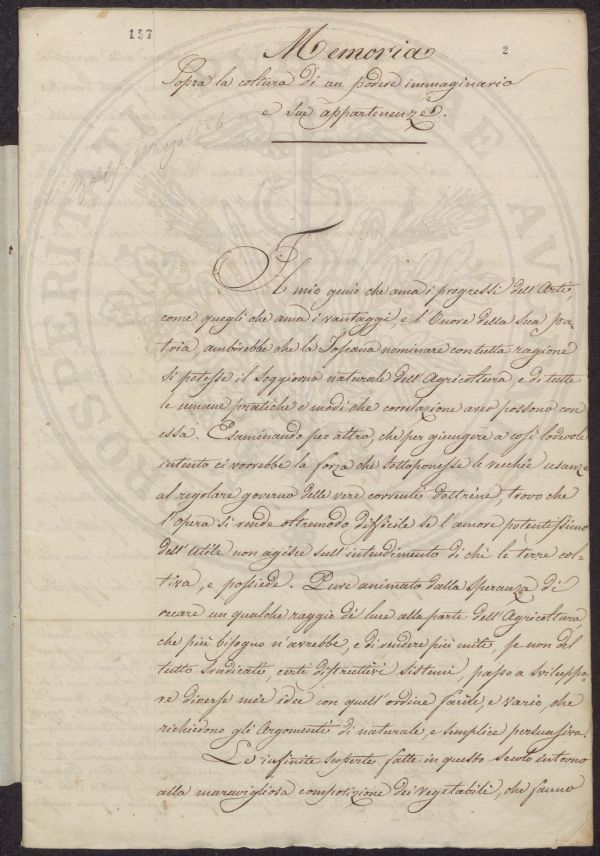 157
2
Memoria
Sopra la coltura di un podere immaginario
e sue appartenenze.
Il mio genio che ama i progressi dell'Arti,
come quegli che ama i vantaggi, e l'Onore della sua pa-
tria ambirebbe che la Toscana nominare con tutta ragione
si potesse il soggiorno naturale dell'Agricoltura, e di tutte
le umane pratiche e modi che correlazione aver possono con
essa. Esaminando per altro, che per giungere a così lodevole
intento ci vorrebbe la forza che sottoponesse le vecchie usanze
al regolare governo delle vere correnti dottrine, trovo che
l'opera si rende oltremodo difficile se l'amore potentissimo
dell'Utile non agisce sull'intendimento di chi le terre col-
tiva, e possiede. Pure animato dalla speranza di
recare un qualche raggio di luce alla parte dell'Agricoltura
che più bisogno n'avrebbe, e di rendere più mite, se non del
tutto sradicate, certi distruttivi sistemi, passo a sviluppa-
re diverse mie idee con quell'ordine facile, e vario, che
richiedono gli Argomenti di naturale, e semplice persuasiva.
Le infinite scoperte fatte in questo secolo intorno
alla maravigliosa composizione dei vegetabili, che fanno
PROSPERITATI PUBLICAE AU